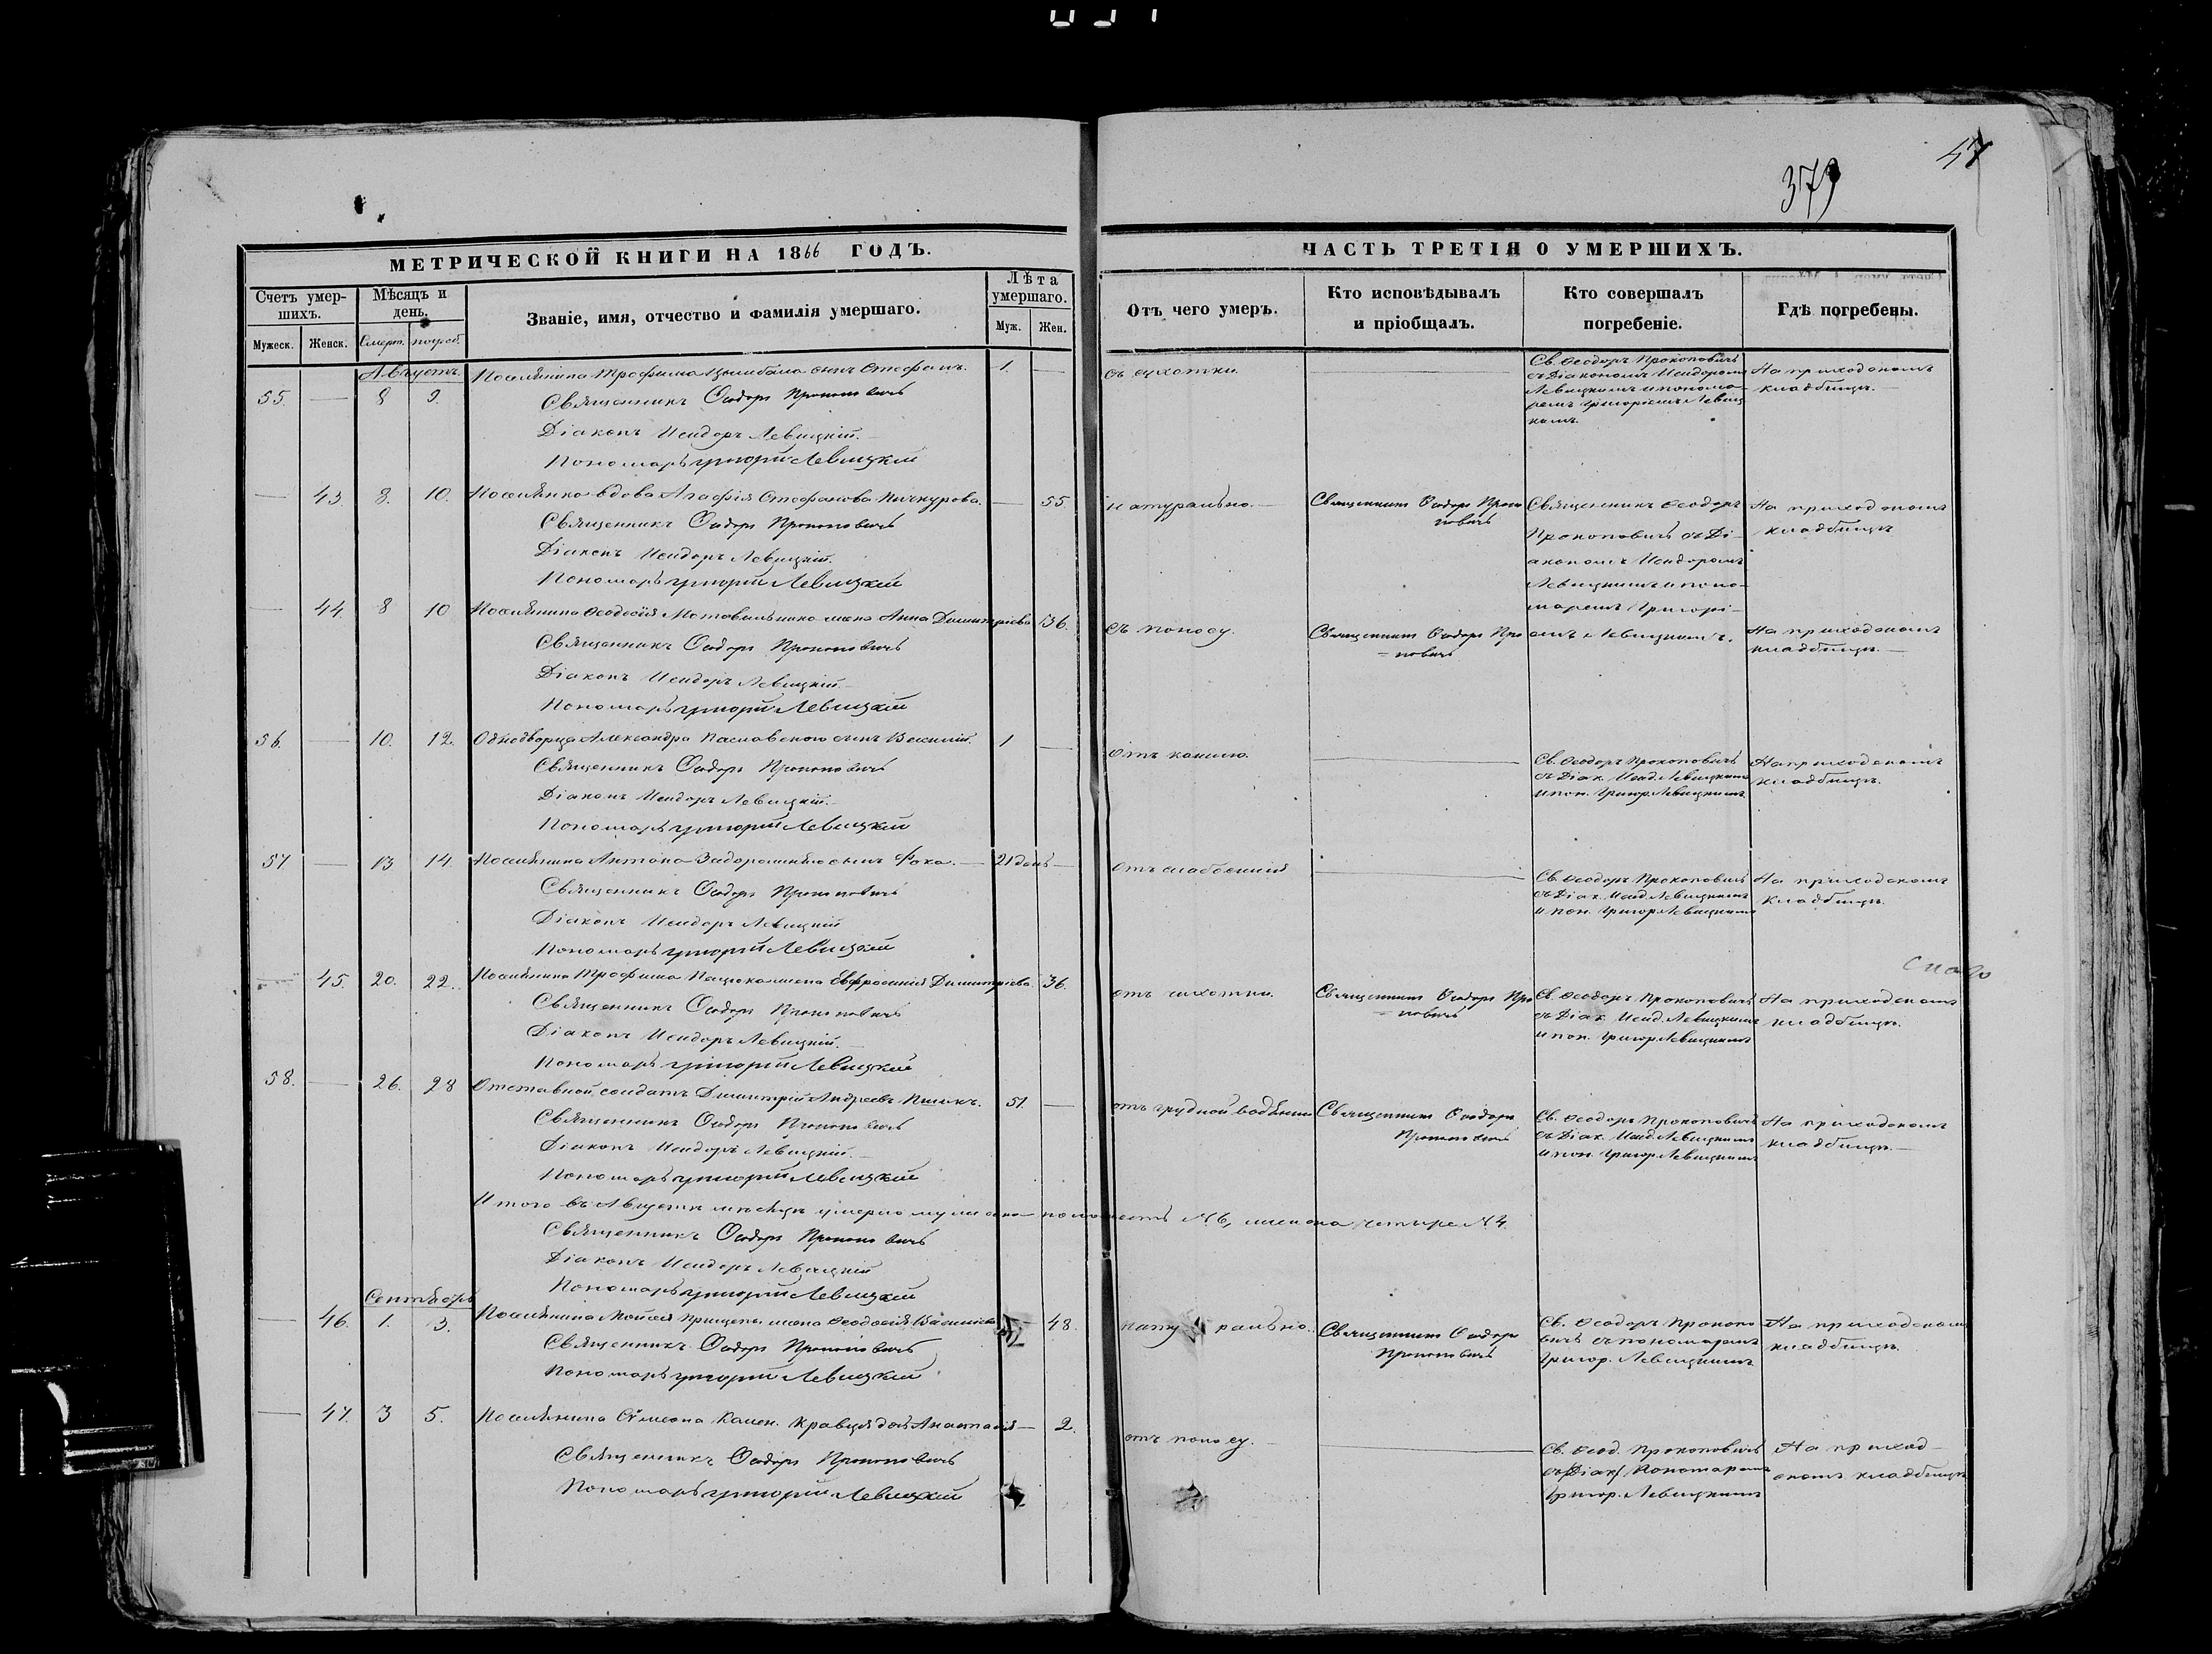 47
379
МЕТРИЧЕСКОЙ КНИГИ НА 1866 ГОДЪ.
Счетъ умер-
шихъ.
Мужеск. Женск.
Мѣсяцъ и
день.
Смерт. погреб.
Званіе, имя, отчество и фамилія умершаго.
Лѣта
умершаго.
Муж. Жен.
ЧАСТЬ ТРЕТІЯ О УМЕРШИХЪ.
Отъ чего умеръ.
Кто исповѣдывалъ
и пріобщалъ.
Кто совершалъ
погребеніе.
Гдѣ погребены.
Августъ
55. — 8 9. Поселянина Трофима Цымбала сынъ Стефанъ. 1. —
Священникъ Ѳеодоръ Прокоповичъ
Діаконъ Исидоръ Левицкій.
Пономарь Григорій Левицкій
съ сухотки.
Св. Ѳеодоръ Прокоповичъ
съ Діакономъ Исидоромъ
Левицкимъ и понома-
ремъ Григоріемъ Левиц
кимъ.
На приходскомъ
кладбищѣ.
— 43. 8. 10. Поселянка вдова Агафія Стефанова Пичкурова. — 55.
Священникъ Ѳеодоръ Прокоповичъ
Діаконъ Исидоръ Левицкій.
Пономарь Григорій Левицкій
натурально.
Священникъ Ѳеодоръ Проко
повичъ
Священникъ Ѳеодоръ
Прокоповичъ съ Ді-
акономъ Исидоромъ
Левицкимъ и поно-
маремъ Григорі-
емъ Левицкимъ.
На приходскомъ
кладбищѣ
— 44. 8 10 Поселянина Ѳеодосія жена Анна Димитріева 36.
Священникъ Ѳеодоръ Прокоповичъ
Діаконъ Исидоръ Левицкій.
Пономарь Григорій Левицкій
съ поносу.
Священникъ Ѳеодоръ Про
=повичъ
На приходскомъ
кладбищѣ.
56. — 10. 12. Однодворца Александра Пасловского сынъ Василій. 1 —
Священникъ Ѳеодоръ Прокоповичъ
Діаконъ Исидоръ Левицкій.
Пономарь Григорій Левицкій
отъ кашлю.
Св. Ѳеодоръ Прокоповичъ
съ Діак. Исид. Левицкимъ
и пон. Григор. Левицкимъ
На приходскомъ
кладбищѣ.
57. — 13 14. Поселянина Антона сынъ Фока. — 21 день —
Священникъ Ѳеодоръ Прокоповичъ
Діаконъ Исидоръ Левицкій
Пономарь Григорій Левицкій
отъ слабости
Св. Ѳеодоръ Прокоповичъ
съ Діак. Исид. Левицкимъ
и пон. Григор. Левицкимъ
На приходскомъ
кладбищѣ.
— 45. 20. 22. Поселянина Трофима Пацюка жена Евфросинія Димитріева. 36.
Священникъ Ѳеодоръ Прокоповичъ
Діаконъ Исидоръ Левицкій.
Пономарь Григорій Левицкій
отъ сухотки.
Священникъ Ѳеодоръ Про
=повичъ
Св. Ѳеодоръ Прокоповичъ
съ Діак. Исид. Левицкимъ
и пон. Григор. Левицкимъ
На приходскомъ
кладбищѣ.
58. — 26. 28 Отставной солдатъ Димитрій Андреевъ 51. —
Священникъ Ѳеодоръ Прокоповичъ
Діаконъ Исидоръ Левицкій.
Пономарь Григорій Левицкій
отъ грудной водянки
Священникъ Ѳеодоръ
Прокоповичъ
Св. Ѳеодоръ Прокоповичъ
съ Діак. Исид. Левицкимъ
и пон. Григор. Левицкимъ
На приходскомъ
кладбищѣ.
Итого въ Августѣ мѣсяцѣ умерло мужеска пола шесть №6, женска четыре №4.
Священникъ Ѳеодоръ Прокоповичъ
Діаконъ Исидоръ Левицкій
Пономарь Григорій Левицкій
Сентябрь
— 46. 1. 3. Поселянина Мойсея Прищепы жена Ѳеодосія Василіева 48.
Священникъ Ѳеодоръ Прокоповичъ
Пономарь Григорій Левицкій
натурально.
Священникъ Ѳеодоръ
Прокоповичъ
Св. Ѳеодоръ Прокопо
вичъ съ пономаремъ
Григор. Левицкимъ
На приходскомъ
кладбищѣ.
— 47. 3 5. Поселянина Сѵмеона Кравця дочь Анастасія — 2.
Священникъ Ѳеодоръ Прокоповичъ
Пономарь Григорій Левицкій
отъ поносу.
Св. Ѳеод. Прокоповичъ
съ /Діак/ Пономаремъ
Григор. Левицкимъ
На приход-
скомъ кладбищѣ